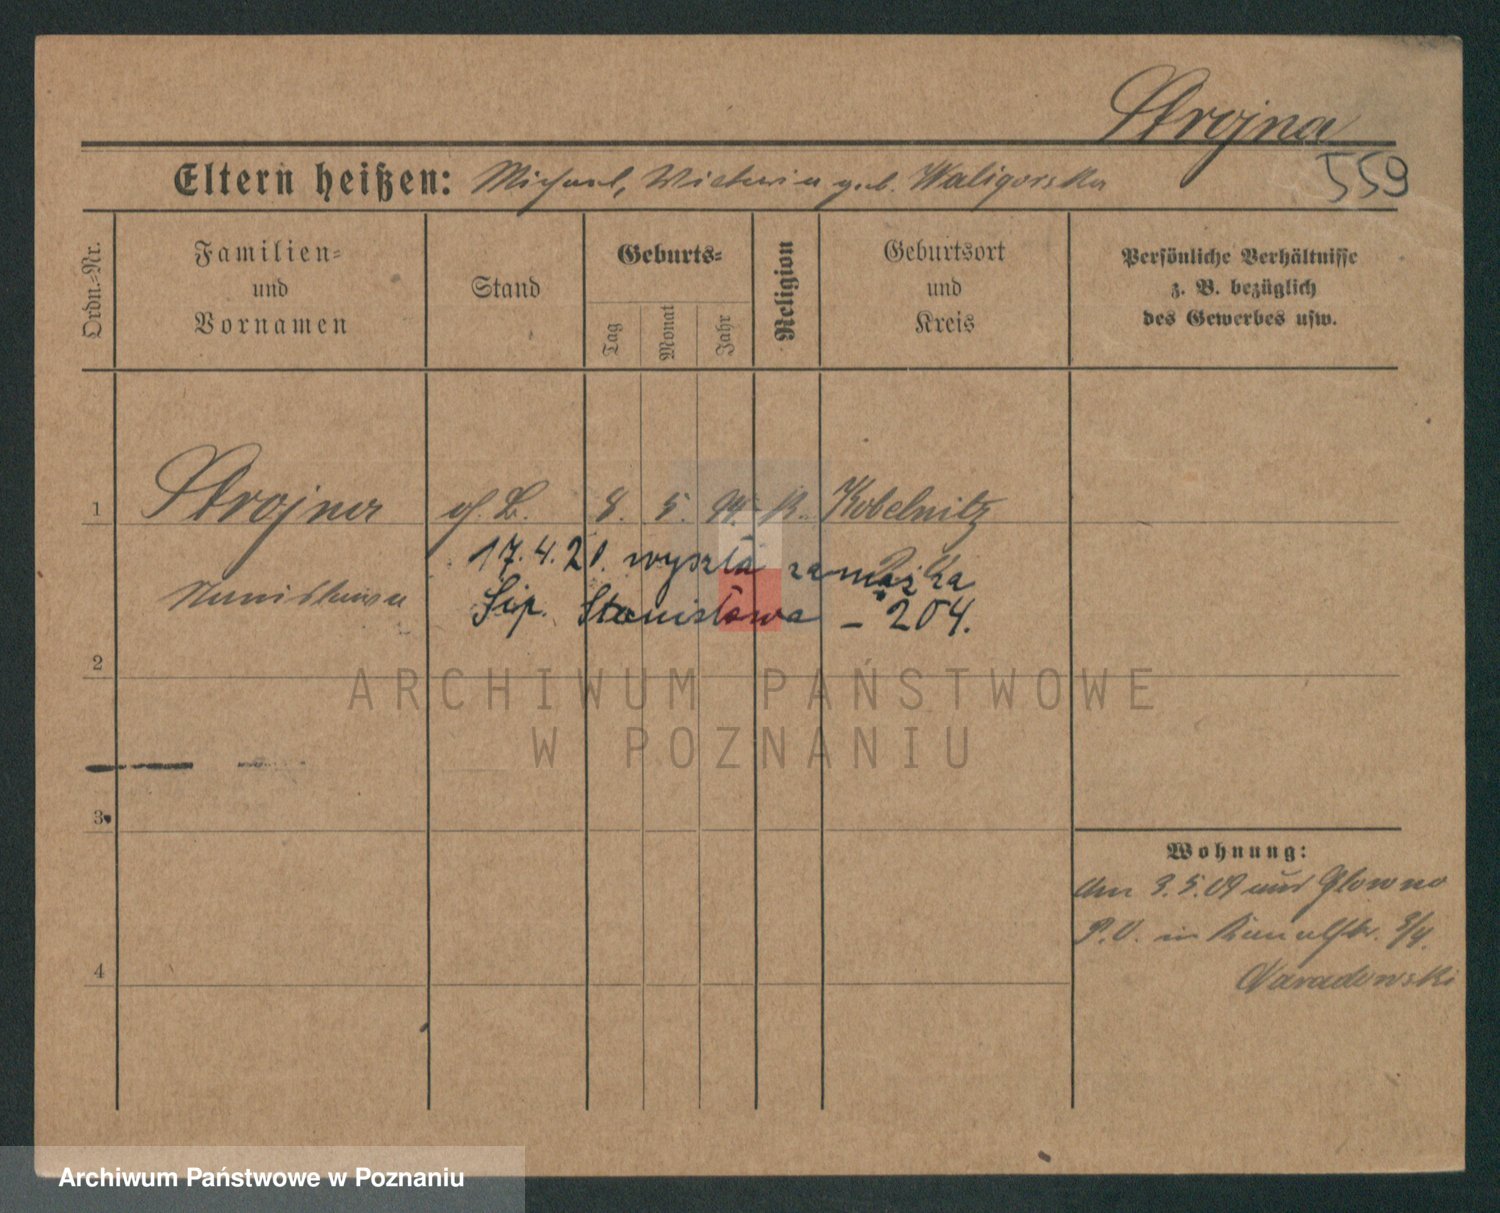 Strojna
559
Eltern heißen: Michael, Victoria geb. Waligorska
Ordn.-Nr.
Familien-
und
Vornamen
Stand
Geburts-
Tag
Monat
Jahr
Religion
Geburtsort
und
Kreis
Persönliche Verhältnisse
z. B. bezüglich
des Gewerbes usw.
1
Strojna
8. 5. 94. K. Kobelnitz
17.4.21. wyszła zamąż za
Stanislawa
Sip. Stanisława – 204.
2
3
4
Wohnung:
Am 3.5.09 aus Glowno
P.O. in
ARCHIWUM PAŃSTWOWE
W POZNANIU
Archiwum Państwowe w Poznaniu